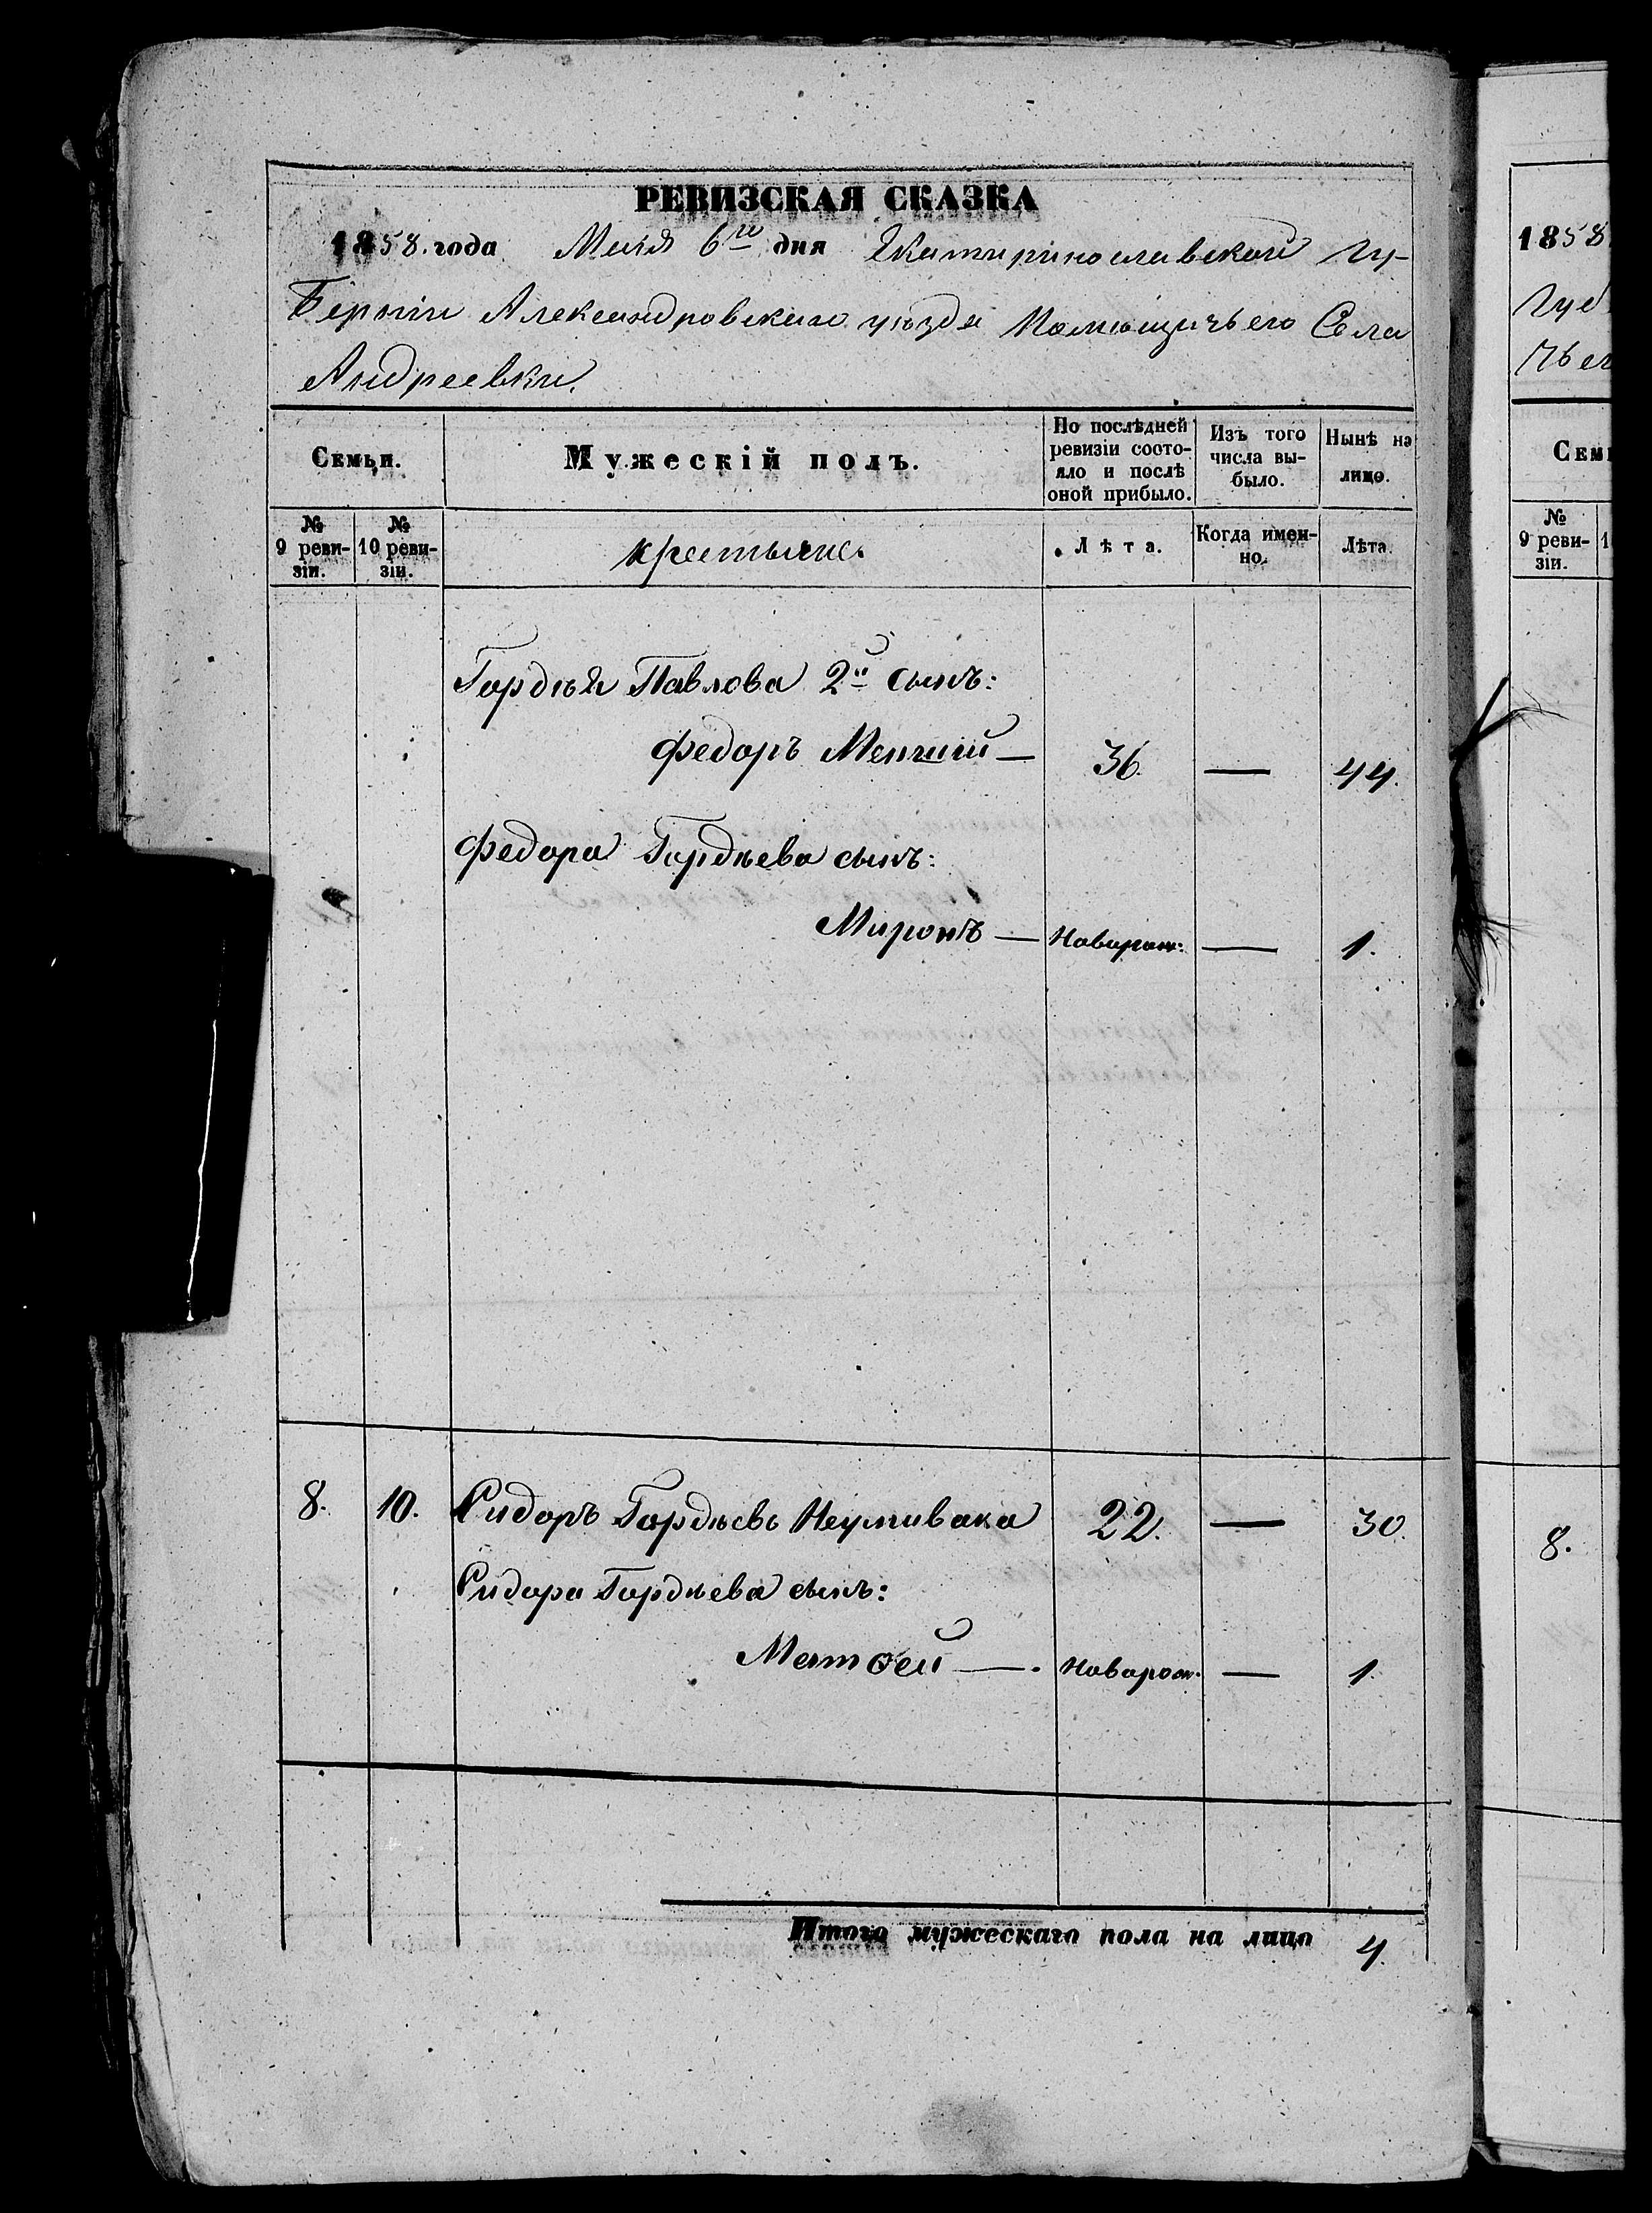 РЕВИЗСКАЯ СКАЗКА
1858. года Маія 6го дня Екатиринославской Гу-
берніи Александровскаго уѣзда Помѣщичьего Села
Андреевки.
Семьи.
Мужескій полъ.
По послѣдней
ревизіи состо-
яло и послѣ
оной прибыло.
Изъ того
числа вы-
было.
Нынѣ на
лицо.
№
9 реви-
зіи.
№
10 реви-
зіи.
крестьяне.
Лѣта.
Когда имен-
но.
Лѣта.
Гордѣя Павлова 2й сынъ:
Федоръ Менший — 36. — 44.
Федора Гордѣева сынъ:
Миронъ — Новорож: — 1.
8. 10. Сидоръ Гордѣевъ Неумивака 22. — 30.
Сидора Гордѣева сынъ:
Матѳей — Новорож. — 1.
Итого мужескаго пола на лицо 4.
1858
Губ
чьег
Сем
№
9 реви-
зіи.
1
8.